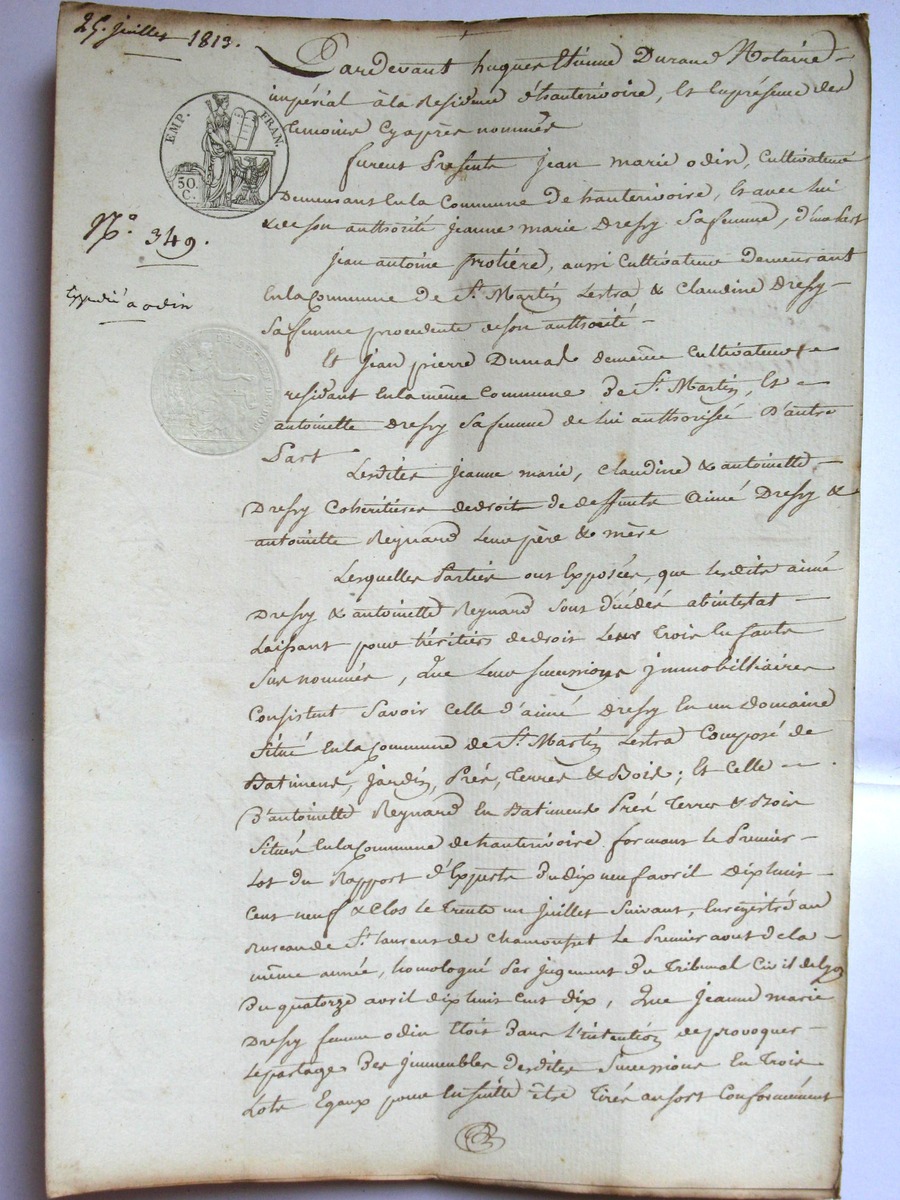 25. juillet 1813.
Pardevant hugues Etienne Durand Notaire
impérial à la Residence d'hauterivoire, Et En présence des
Temoins Cy après nommés
EMP. FRAN.
50. C.
furent Presents Jean marie odin, Cultivateur
Demeurant En la Commune De hauterivoire, Et avec lui
& de son authorité Jeanne marie Dressy Sa femme, d'une Part
N.° 349.
Jean antoine protière, aussi Cultivateur demeurant
En la Commune De S.t Martin Lestra & Claudine Dressy
Sa femme procedente de son authorité
Expedié a odin
Et Jean pierre Dumas demême Cultivateur
residant En la même Commune De S.t Martin, Et
antoinette Dressy Sa femme de lui authorisée D'autre
Part
Lesdites Jeanne marie, Claudine & antoinette
Dressy Cohéritières de droit de deffunts Aimé Dressy &
antoinette Reynard Leurs père & mère
Lesquelles Parties ont Exposées, que lesdits aimé
Dressy & antoinette Reynard Sont décédés abintestat
Laissant pour héritiers de droit Leurs Trois Enfants
Sus nommés, Que Leurs successions jmmobilliaires
Consistent Savoir Celle d'aimé Dressy En un Domaine
Situé En la Commune de S.t Martin Lestra Composé de
Batiments, Jardin, Prés, Terres & Bois; Et Celle
D'antoinette Reynard En Batiments Prés Terres & Bois
Situés En la Commune de hauterivoire formant le Premier
Lot du Rapport d'Experts du dix neuf avril Dix huit
Cent neuf & Clos le Trente un Juillet Suivant, Enregistré au
Bureau de S.t Laurent de Chamousset Le Premier aout de la
même année, homologué Par Jugement du Tribunal Civil de Lyon
Du quatorze avril dix huit cent dix, Que Jeanne marie
Dressy femme odin Etoit Dans l'intention de provoquer
Le partage Des jmmeubles Desdites Successions En Trois
Lots Egaux pour Ensuite être Tirés au sort Conformément